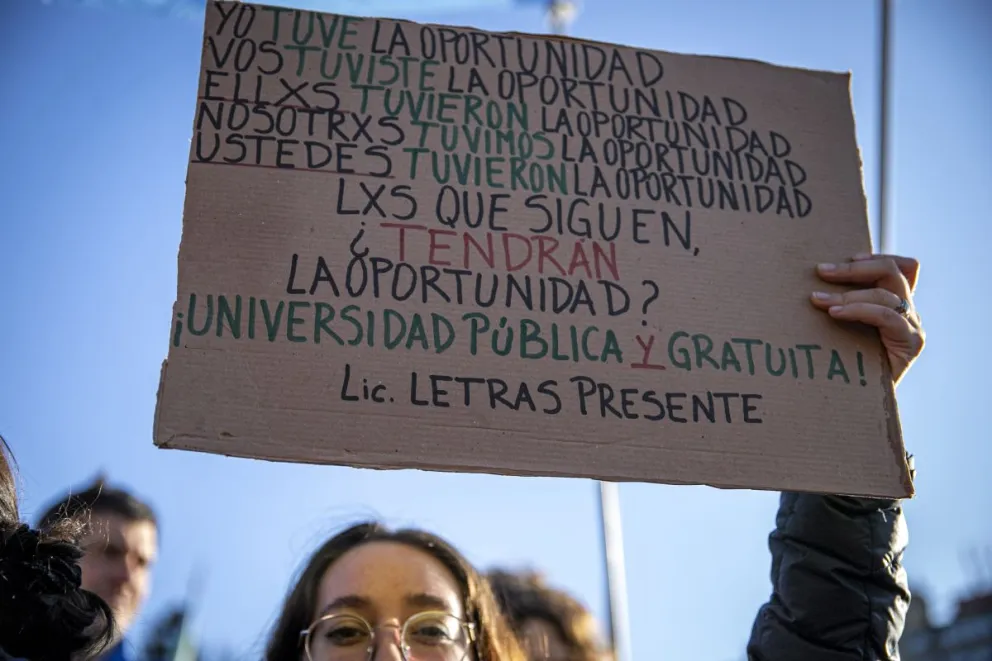 YO TUVE LA OPORTUNIDAD
VOS TUVISTE LA OPORTUNIDAD
ELLXS TUVIERON LA OPORTUNIDAD
NOSOTRXS TUVIMOS LA OPORTUNIDAD
USTEDES TUVIERON LA OPORTUNIDAD
LXS QUE SIGUEN,
¿TENDRÁN
LA OPORTUNIDAD?
¡UNIVERSIDAD PÚBLICA Y GRATUITA!
Lic. LETRAS PRESENTE